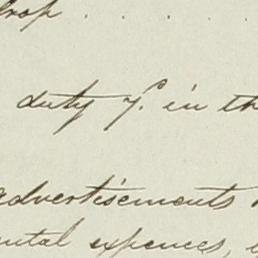 drop . . . .
duty f. in th
advertisements
ental expences,